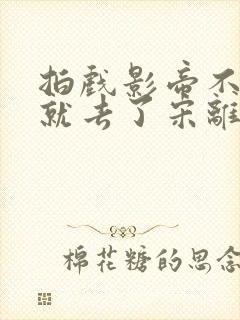 拍戏影帝不
就去了宋離
棉花糖的思念